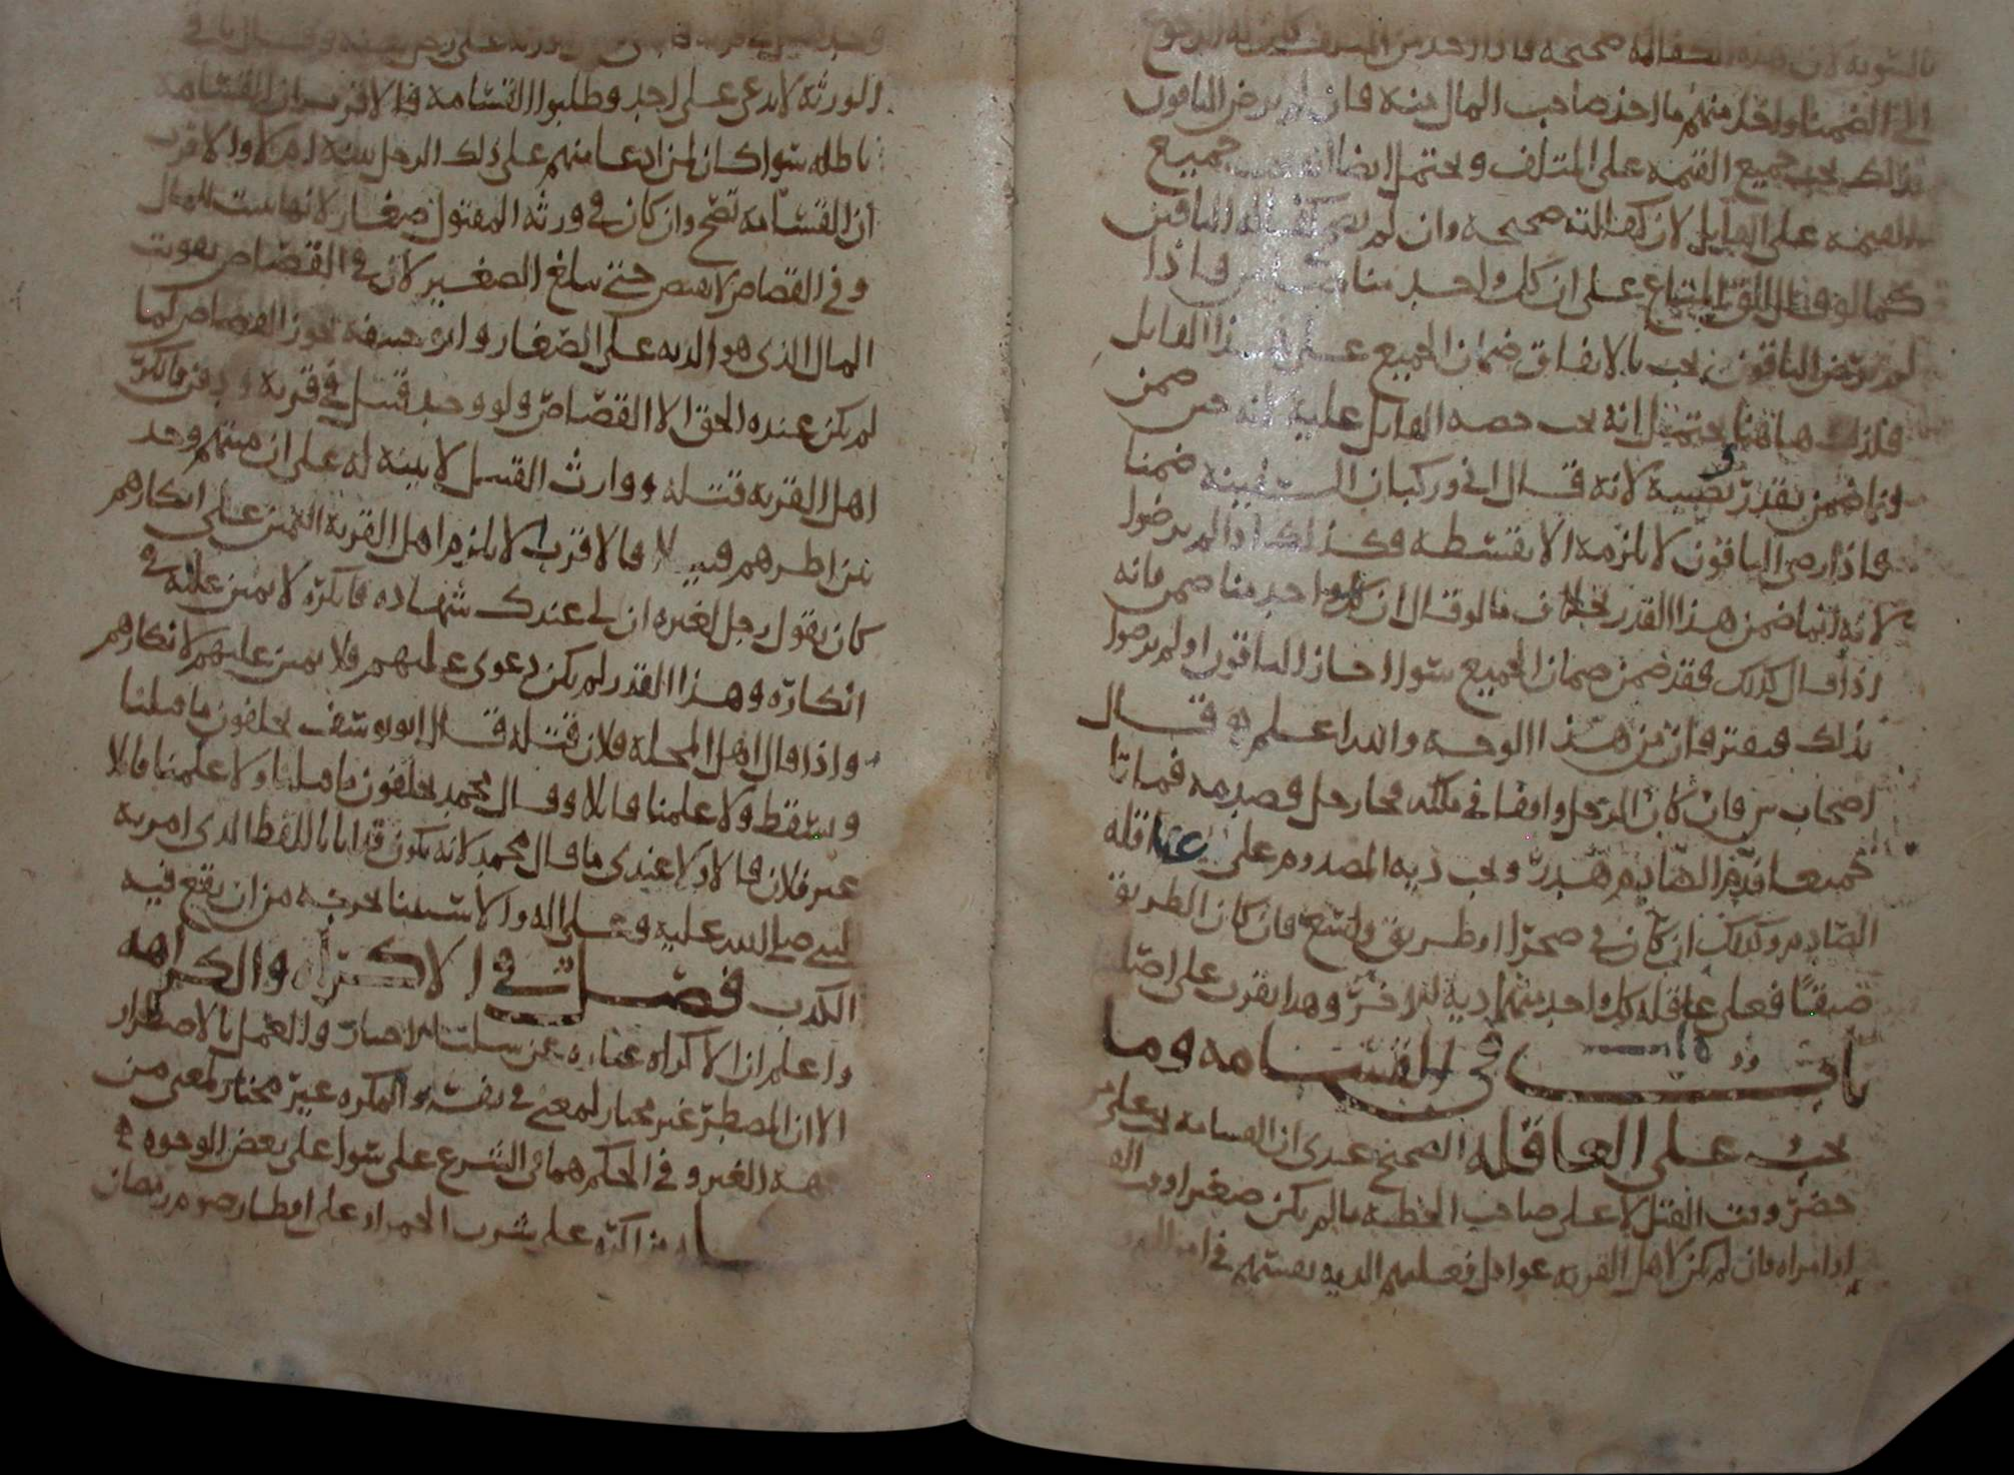 بالسوية لان هذه الكفالة صحيحة فاذا اخذ من المتلف كان له الرجوع
الى الضمنا واخذ منهم ما اخذ صاحب المال منه فان لم يرض الباقون
بذلك يجب جميع القيمه على المتلف ويحتمل ايضا انه يجب جميع
القيمه على القايل لان كفالته صحيحة وان لم تصح كفاله الباقين
كما لو قال على ان كل واحد منا فاذا
لم يرض الباقون يجب بالاتفاق ضمان الجميع على هذا القايل
فلذلك هاهنا يحتمل انه يجب حصه القايل عليه لانه حين ضمن
وانما ضمن بقدر نصيبه لانه قال اني وركبان السفينة ضمنا
فاذا رضى الباقون لا يلزمه الا بقسطه وكذلك اذا لم يرضوا
لانه انما ضمن هذا القدر بخلاف ما لو قال ان كل واحد منا ضمن فانه
اذا قال كذلك فقد ضمن ضمان الجميع سوا اجاز الباقون او لم يرضوا
بذلك فيفترقان من هذا الوجه والله اعلم وقال
اصحاب ش فان كان الرجل واقفا في ملكه فجا رجل فصدمه فماتا
جميعا فدم الصادم هدر ويجب ديه المصدوم على عاقله
الصادم وكذلك ان كان في صحرا او طريق واسع فان كان الطريق
ضيقا فعلى عاقله كل واحد منهما ديه الاخر وهذا يقرب على اصل
باب في القسامه وما
يجب على العاقله الصحيح عندي ان القسامه يجب على من
حضر وقت القتل لا على صاحب الخطه ما لم يكن صغيرا او
او امراه فان لم يكن لاهل القريه عواقل فعليهم الديه بقسمتهم في
وجد قتيل في قرية على رجل بعينه وقال باقي
الورثه لا ندعى على احد وطلبوا القسامه فالاقرب ان القسامه
باطله سوا كان لمن ادعا منهم على ذلك الرجل بينه ام لا والاقرب
ان القسامه تصح وان كان في ورثه المقتول صغار لانها سبب المال
وفي القصاص لا يقتص حتى يبلغ الصغير لان في القصاص يفوت
المال الذي هو الديه على الصغار وابو حنيفه يجوز القصاص كما
لم يكن عنده الحق الا القصاص ولو وجد قتيل في قريه فانكر
اهل القريه قتله ووارث القتيل لا بينه له على ان ميتهم وجد
بين اظهرهم قتيلا فالاقرب لا يلزم اهل القرية اليمين على انكارهم
كان يقول رجل لغيره ان لي عندك شهاده فانكره لا يمين عليه في
انكاره وهذا القدر لم يكن دعوى عليهم فلا يمين عليهم لانكارهم
واذا قال اهل المحله فلان قتله قال ابو يوسف يحلفون ما قتلنا
ويسقط ولا علمنا قاتلا وقال محمد يحلفون ما قتلنا ولا علمنا قاتلا
غير فلان قال والاولا عندي ما قال محمد لانه يكون قد اتا باللفظ الذي امر به
النبي صلى الله عليه وعلى اله والاستثنا يخرجه من ان يقع فيه
الكذب فصل في الاكراه والكراهه
واعلم ان الاكراه عباره عن سلب الاختيار والعمل بالاضطرار
الا ان المضطر غير مختار لمعنى في نفسه والمكره غير مختار لمعنى من
جهه الغير وفي الحكم هما في الشرع على سوا على بعض الوجوه في
من اكره على شرب الخمر او على افطار صوم رمضان